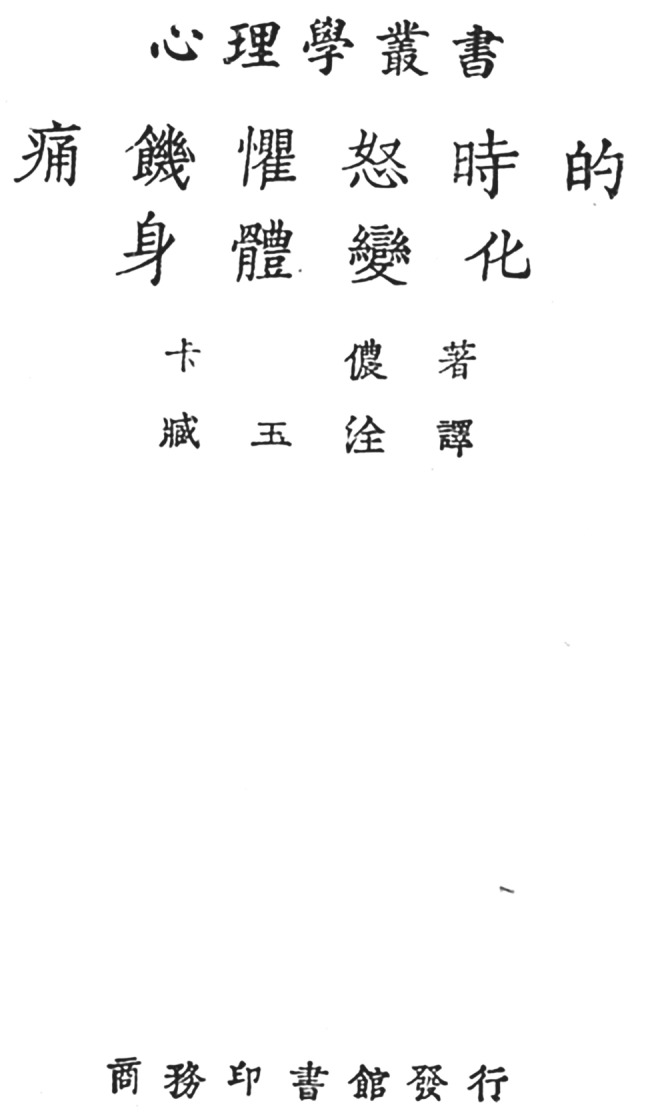 心理學叢書
痛饑懼怒時的
身體變化
卡儂著
臧玉洤譯
商務印書館發行